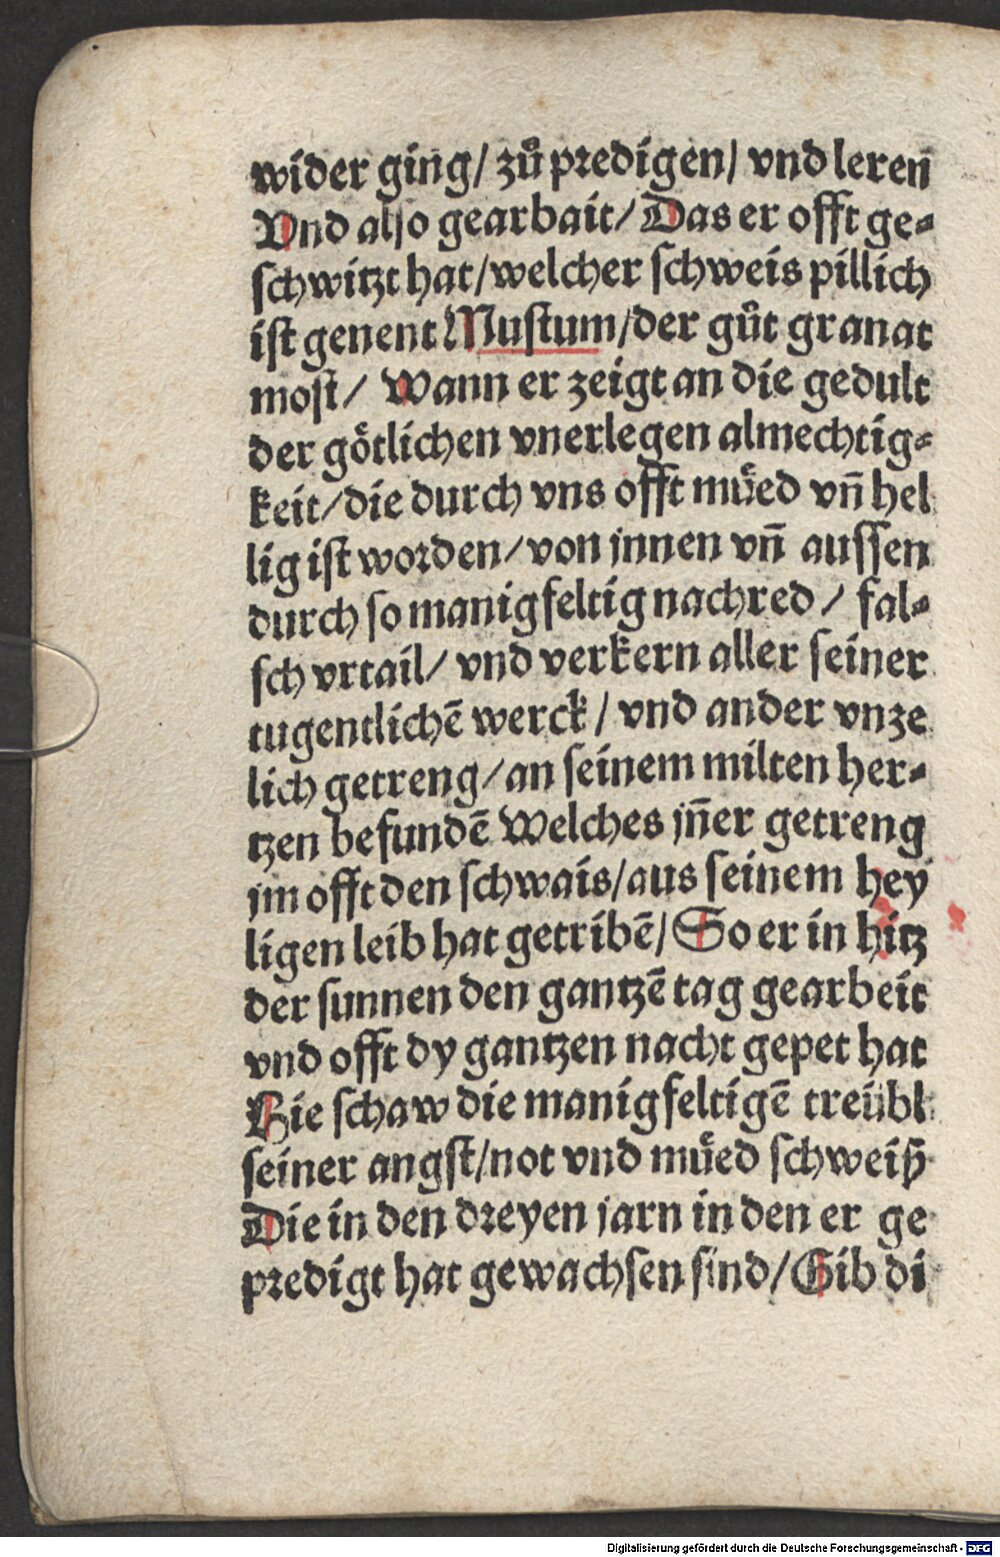 wider ging/ zůpredigen/ vnd leren
Vnd also gearbait/ Das er offt ge⸗
schwitzt hat/welcher schweis pillich
ist genent Mustum/der gůt granat
most/ Wann er zeigt an die gedult
der gőtlichen vnerlegen almechtig⸗
keit/die durch vns offt můed vn̄ hel
lig ist worden/von jnnen vn̄ aussen
durch so manigfeltig nachred/ fal⸗
sch vrtail/ vnd verkern aller seiner
tugentlichē werck/ vnd ander vnze
lich getreng/an seinem milten her⸗
tzen befundē Welches jn̄er getreng
jm offt den schwais/aus seinem hey
ligen leib hat getribē/ So er in hitz
der sunnen den gantzē tag gearbeit
vnd offt dy gantzen nacht gepet hat
Hie schaw die manigfeltigē treübl
seiner angst/not vnd můed schweiß
Die in den dreyen jarn in den er ge
predigt hat gewachsen sind/ Gib di
Digitalisierung gefördert durch die Deutsche Forschungsgemeinschaft - DFG